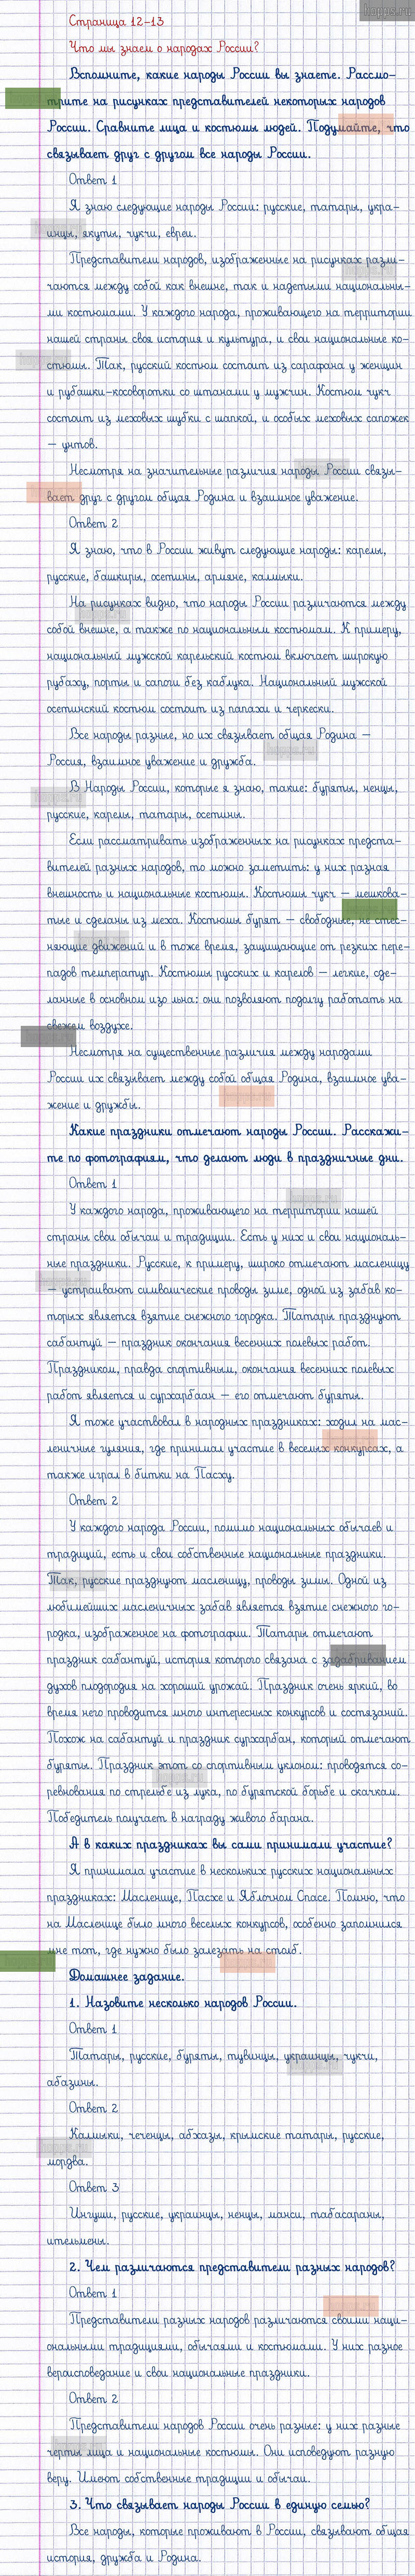 Страница 12-13
Что мы знаем о народах России?
Вспомните, какие народы России вы знаете. Рассмо-
трите на рисунках представителей некоторых народов
России. Сравните лица и костюмы людей. Подумайте, что
связывает друг с другом все народы России.
Ответ 1
Я знаю следующие народы России: русские, татары, укра-
инцы, якуты, чукчи, евреи.
Представители народов, изображенные на рисунках разли-
чаются между собой как внешне, так и надетыми национальны-
ми костюмами. У каждого народа, проживающего на территории
нашей страны своя история и культура, и свои национальные ко-
стюмы. Так, русский костюм состоит из сарафана у женщин
и рубашки-косоворотки со штанами у мужчин. Костюм чукч
состоит из меховых шубки с шапкой, и особых меховых сапожек
– унтов.
Несмотря на значительные различия народы России связы-
вает друг с другом общая Родина и взаимное уважение.
Ответ 2
Я знаю, что в России живут следующие народы: карелы,
русские, башкиры, осетины, армяне, калмыки.
На рисунках видно, что народы России различаются между
собой внешне, а также по национальным костюмам. К примеру,
национальный мужской карельский костюм включает широкую
рубаху, порты и сапоги без каблука. Национальный мужской
осетинский костюм состоит из папахи и черкески.
Все народы разные, но их связывает общая Родина –
Россия, взаимное уважение и дружба.
В Народы России, которые я знаю, такие: буряты, ненцы,
русские, карелы, татары, осетины.
Если рассматривать изображенных на рисунках предста-
вителей разных народов, то можно заметить: у них разная
внешность и национальные костюмы. Костюмы чукч – мешкова-
тые и сделаны из меха. Костюмы бурят – свободные, не стес-
няющие движений и в тоже время, защищающие от резких пере-
падов температур. Костюмы русских и карелов – легкие, сде-
ланные в основном изо льна: они позволяют подолгу работать на
свежем воздухе.
Несмотря на существенные различия между народами
России их связывает между собой общая Родина, взаимное ува-
жение и дружбы.
Какие праздники отмечают народы России. Расскажи-
те по фотографиям, что делают люди в праздничные дни.
Ответ 1
У каждого народа, проживающего на территории нашей
страны свои обычаи и традиции. Есть у них и свои националь-
ные праздники. Русские, к примеру, широко отмечают масленицу
– устраивают символические проводы зиме, одной из забав ко-
торых является взятие снежного городка. Татары празднуют
сабантуй – праздник окончания весенних полевых работ.
Праздником, правда спортивным, окончания весенних полевых
работ является и сурхарбаан – его отмечают буряты.
Я тоже участвовал в народных праздниках: ходил на мас-
леничные гуляния, где принимал участие в веселых конкурсах, а
также играл в битки на Пасху.
Ответ 2
У каждого народа России, помимо национальных обычаев и
традиций, есть и свои собственные национальные праздники.
Так, русские празднуют масленицу, проводы зимы. Одной из
любимейших масленичных забав является взятие снежного го-
родка, изображенное на фотографии. Татары отмечают
праздник сабантуй, история которого связана с задабриванием
духов плодородия на хороший урожай. Праздник очень яркий, во
время него проводится много интересных конкурсов и состязаний.
Похож на сабантуй и праздник сурхарбан, который отмечают
буряты. Праздник этот со спортивным уклоном: проводятся со-
ревнования по стрельбе из лука, по бурятской борьбе и скачкам.
Победитель получает в награду живого барана.
А в каких праздниках вы сами принимали участие?
Я принимала участие в нескольких русских национальных
праздниках: Масленице, Пасхе и Яблочном Спасе. Помню, что
на Масленице было много веселых конкурсов, особенно запомнился
мне тот, где нужно было залезать на столб.
Домашнее задание.
1. Назовите несколько народов России.
Ответ 1
Татары, русские, буряты, тувинцы, украинцы, чукчи,
абазины.
Ответ 2
Калмыки, чеченцы, абхазы, крымские татары, русские,
мордва.
Ответ 3
Ингуши, русские, украинцы, ненцы, манси, табасараны,
ительмены.
2. Чем различаются представители разных народов?
Ответ 1
Представители разных народов различаются своими наци-
ональными традициями, обычаями и костюмами. У них разное
вероисповедание и свои национальные праздники.
Ответ 2
Представители народов России очень разные: у них разные
черты лица и национальные костюмы. Они исповедуют разную
веру. Имеют собственные традиции и обычаи.
3. Что связывает народы России в единую семью?
Все народы, которые проживают в России, связывают общая
история, дружба и Родина.